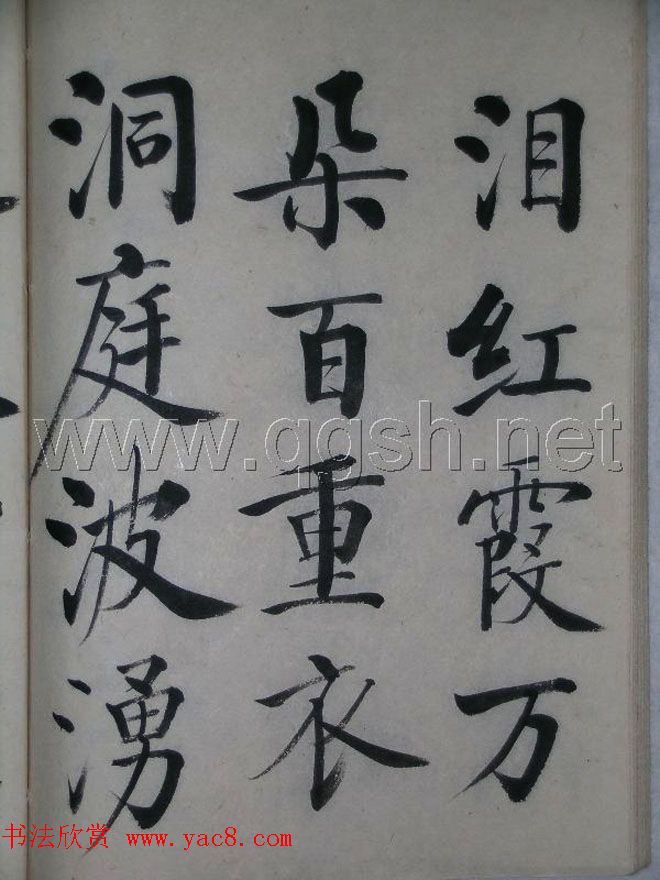 泪红霞万
朵百重衣
洞庭波湧
www.qgsh.net
书法欣赏 www.yac8.com